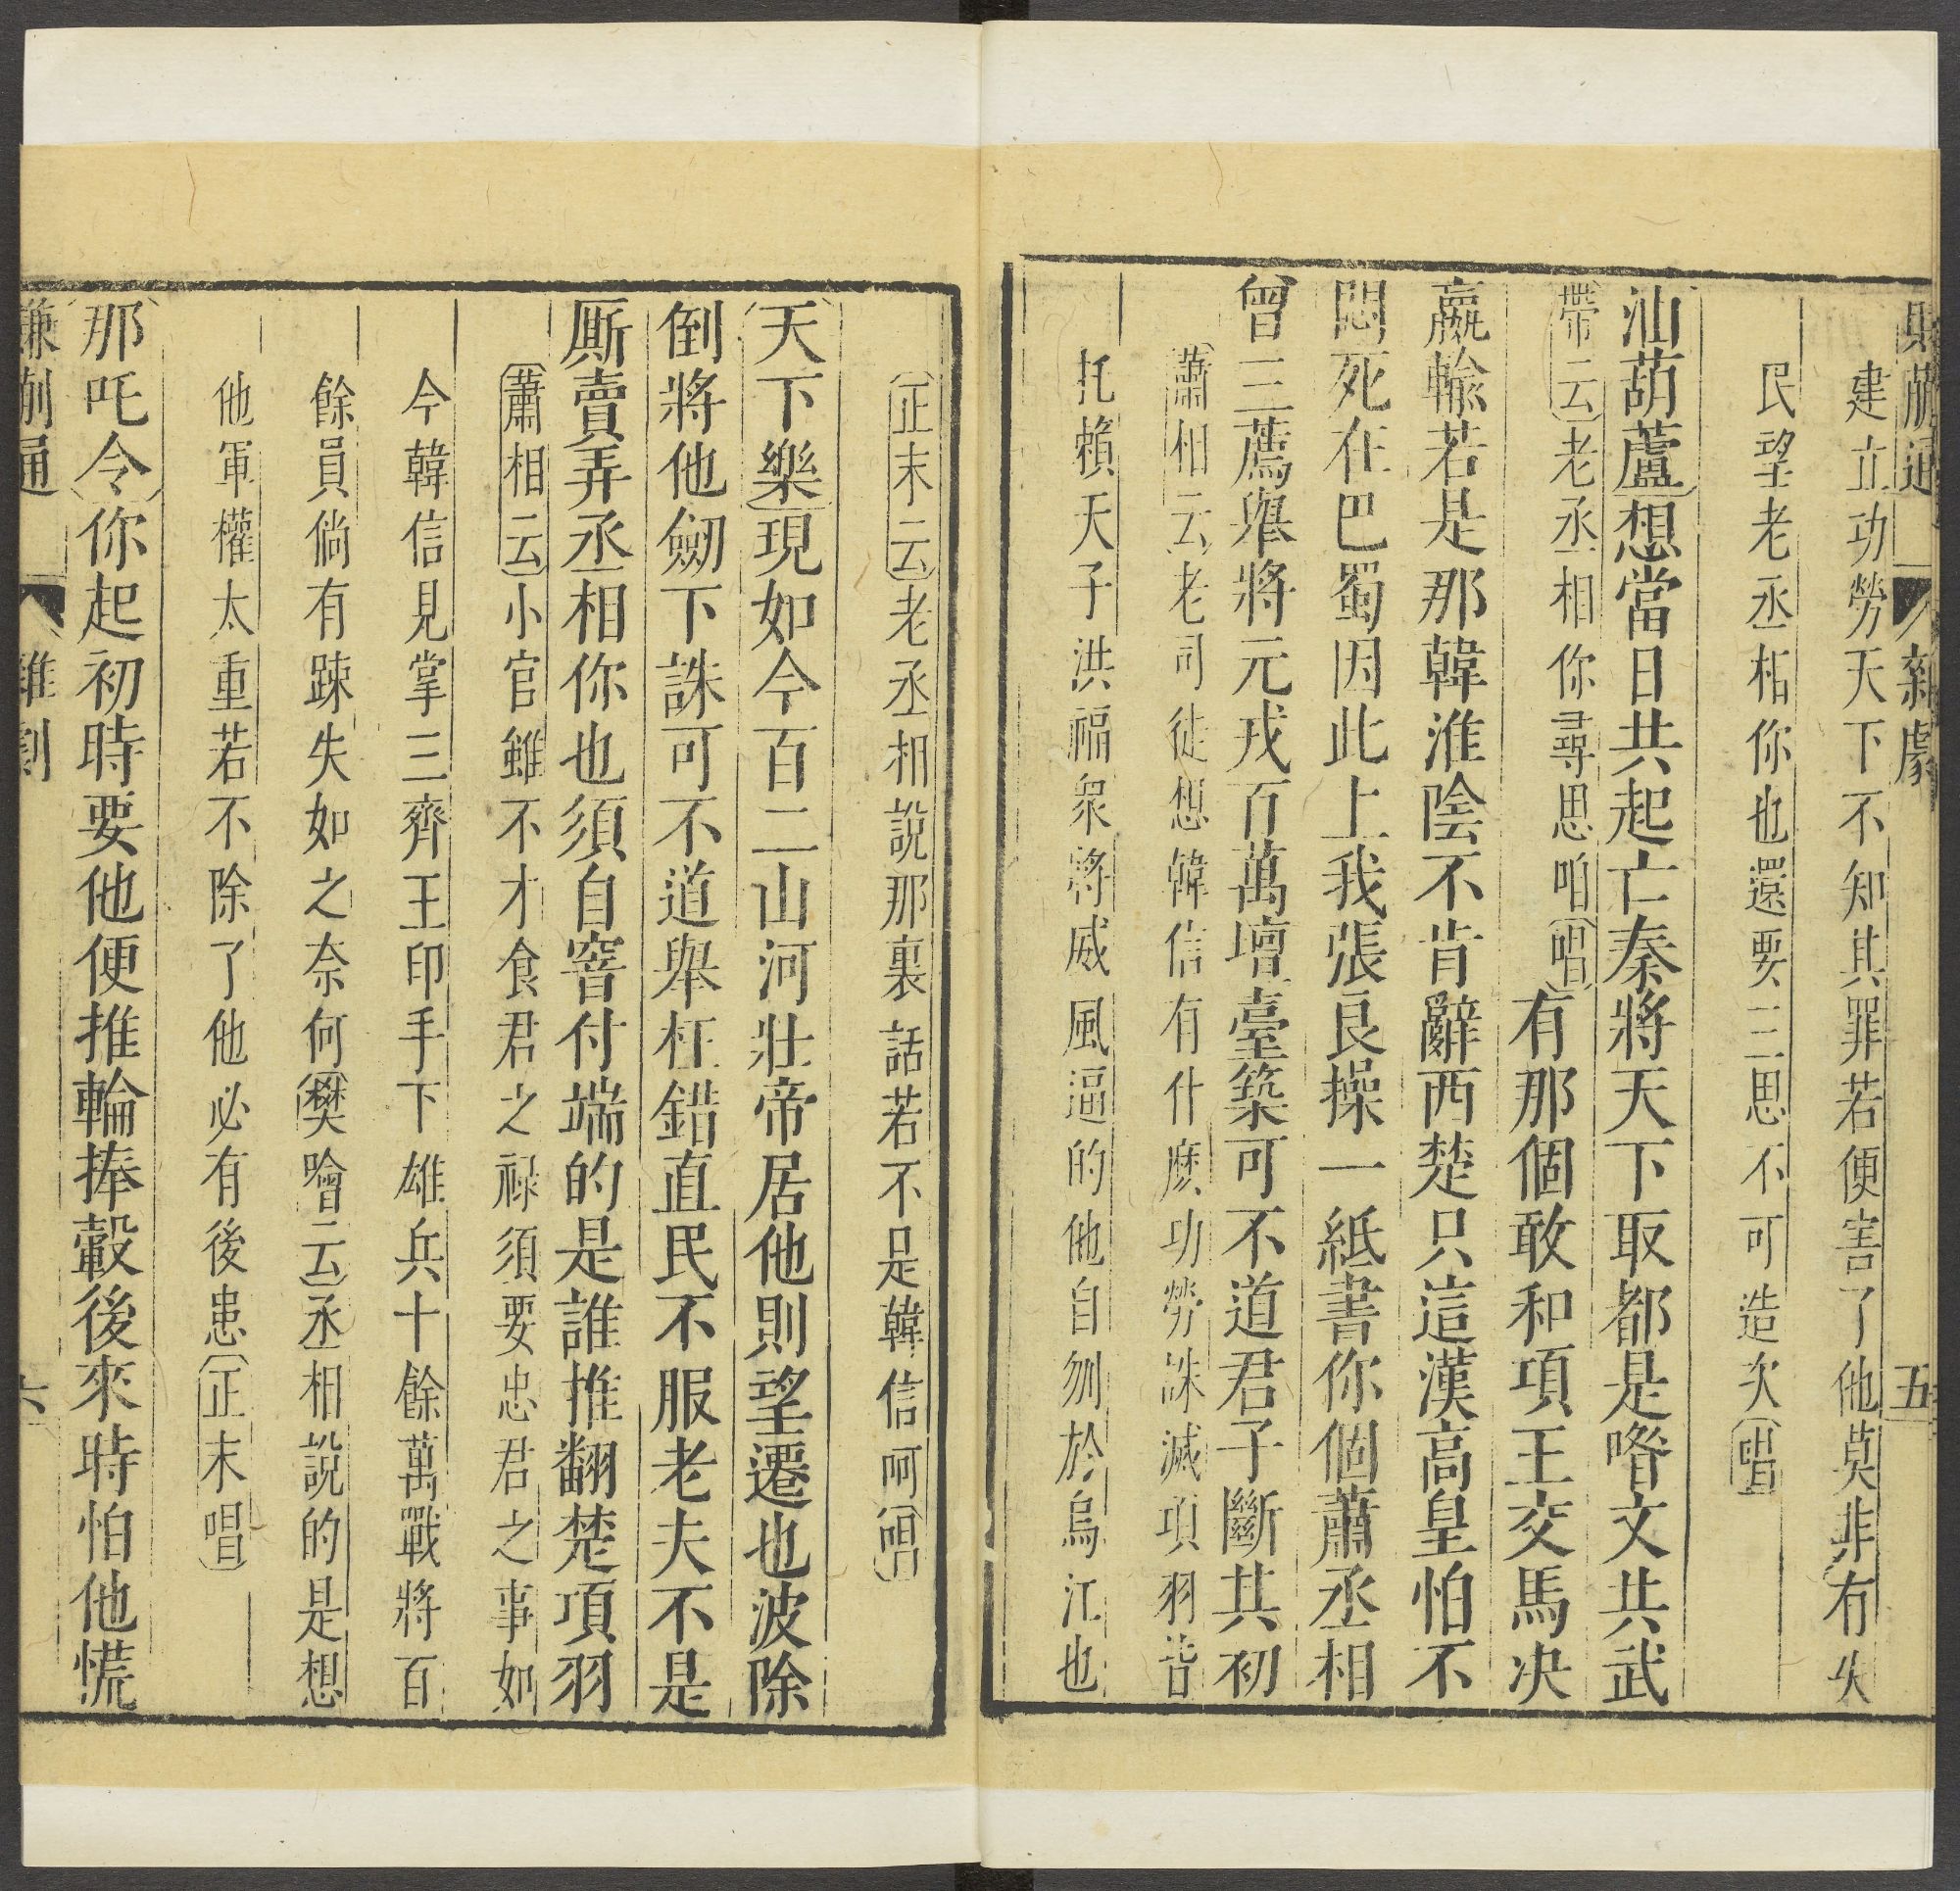 賺蒯通 雜劇 五
建立功勞天下不知其罪若便害了他莫非有失
民望老丞相你也還要三思不可造次(唱)
油葫蘆想當日共起亡秦將天下取都是喒文共武
(帶云)老丞相你尋思咱(唱)有那個敢和項王交馬决
嬴輸若是那韓淮陰不肯辭西楚只這漢高皇怕不
悶死在巴蜀因此上我張良操一紙書你個蕭丞相
曾三薦舉將元戎百萬壇臺築可不道君子斷其初
(蕭相云)老司徒想韓信有什麽功勞誅滅項羽皆
托賴天子洪福衆將威風逼的他自刎於烏江也
(正末云)老丞相說那裏話若不是韓信呵(唱)
天下樂現如今百二山河壯帝居他則望遷也波除
倒將他劒下誅可不道舉枉錯直民不服老夫不是
厮賣弄丞相你也須自窨付端的是誰推翻楚項羽
(蕭相云)小官雖不才食君之祿須要忠君之事如
今韓信見掌三齊王印手下雄兵十餘萬戰將百
餘員倘有踈失如之奈何(樊噲云)丞相說的是想
他軍權太重若不除了他必有後患(正末唱)
那吒令你起初時要他便推輪捧轂後來時怕他慌
賺蒯通 雜劇 六